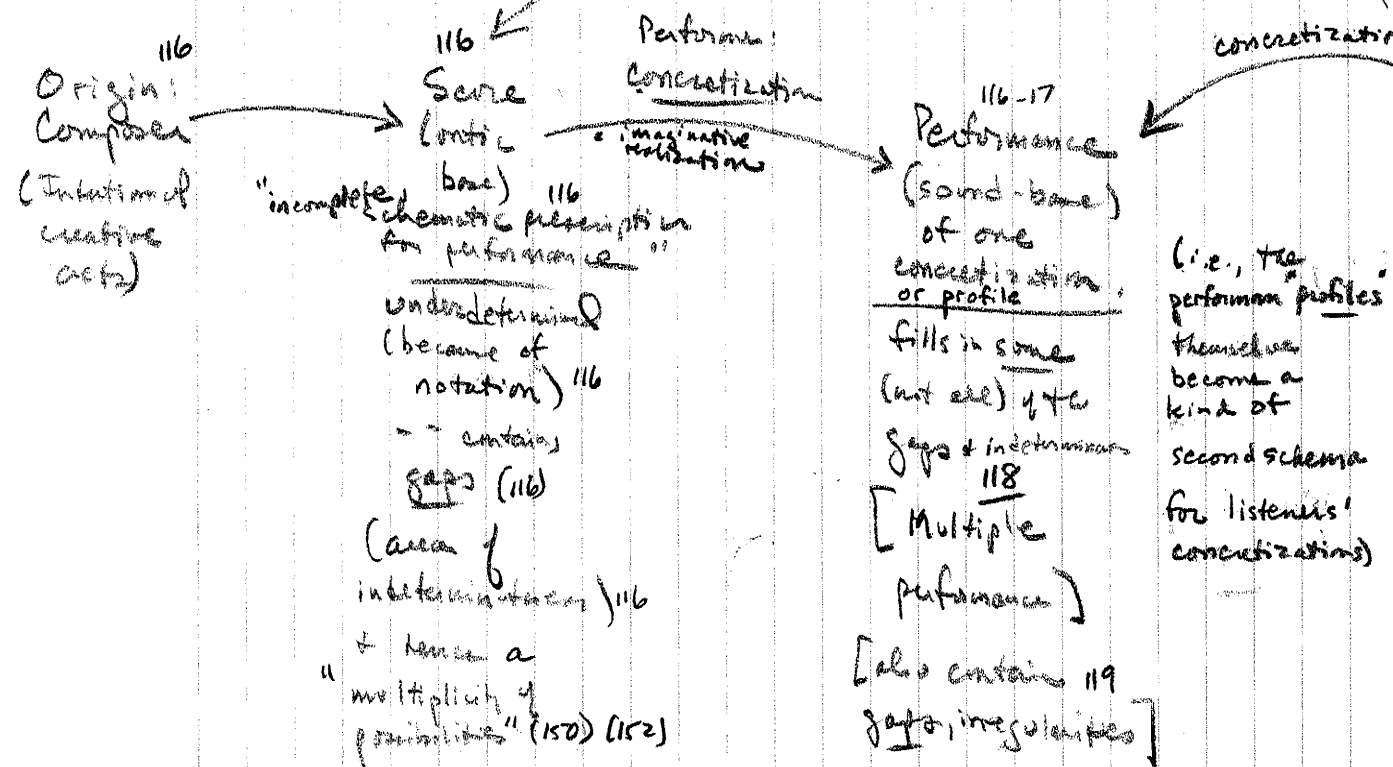 116
Origin:
Composer
(Intentional
creative
acts)
116
Score
(ontic
base)
"incomplete, 116
schematic prescription
for performance"
underdetermined
(because of
notation) 116
-- contains
gaps (116)
(areas of
indeterminateness) 116
+ hence a
"multiplicity of
possibilities" (150) (152)
Performer:
concretization
imaginative
realization
116-17
Performance
(sound-base)
of one
concretization,
or profile
fills in some
(not all) of the
gaps + indeterminacies
118
[Multiple
performance]
[also contain 119
gaps, irregularities]
(i.e., the
performance "profiles"
themselves
become a
kind of
second schema
for listeners'
concretizations)